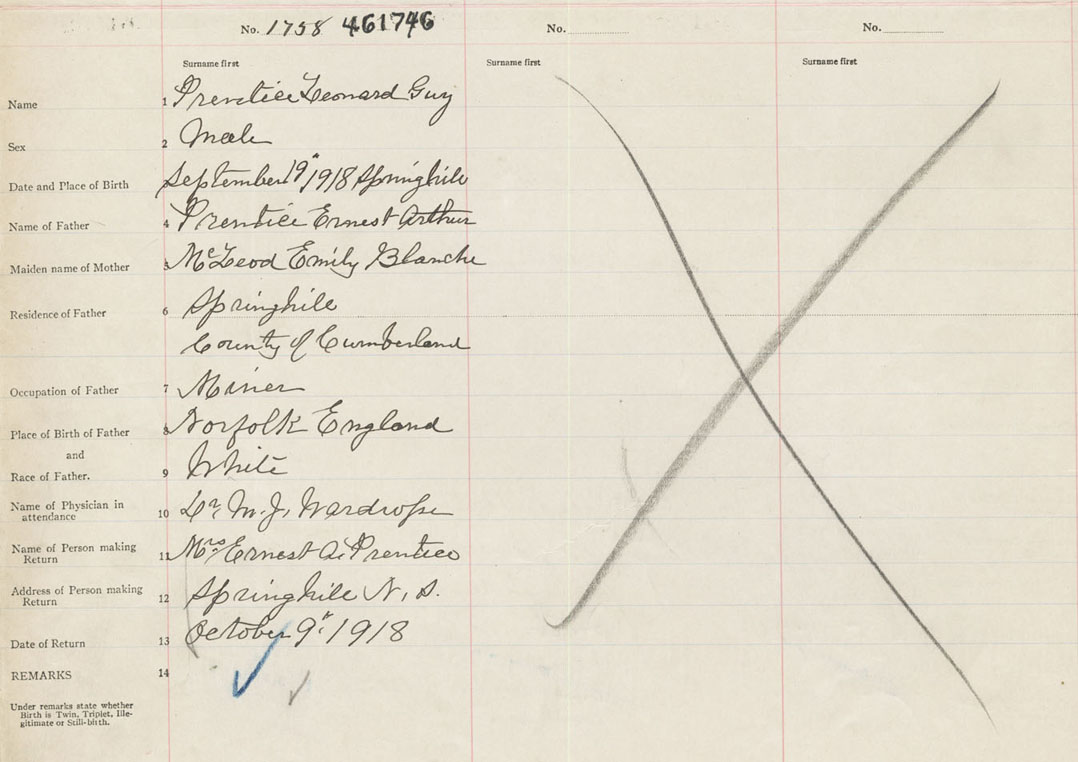 No. 1758 461746 No. No.
Surname first Surname first Surname first
Name 1 Prentice Leonard Guy
Sex 2 Male
Date and Place of Birth September 19" 1918 Springhill
Name of Father 4 Prentice Ernest Arthur
Maiden name of Mother 5 McLeod Emily Blanche
Residence of Father 6 Springhill
County of Cumberland
Occupation of Father 7 Miner
Place of Birth of Father 8 Norfolk England
and
Race of Father. 9 White
Name of Physician in
attendance 10 Dr. M. J. Wardrope
Name of Person making
Return 11 Mrs Ernest A. Prentice
Address of Person making
Return 12 Springhill N. S.
Date of Return 13 October 9" 1918
REMARKS 14
Under remarks state whether
Birth is Twin, Triplet, Ille-
gitimate or Still-birth.